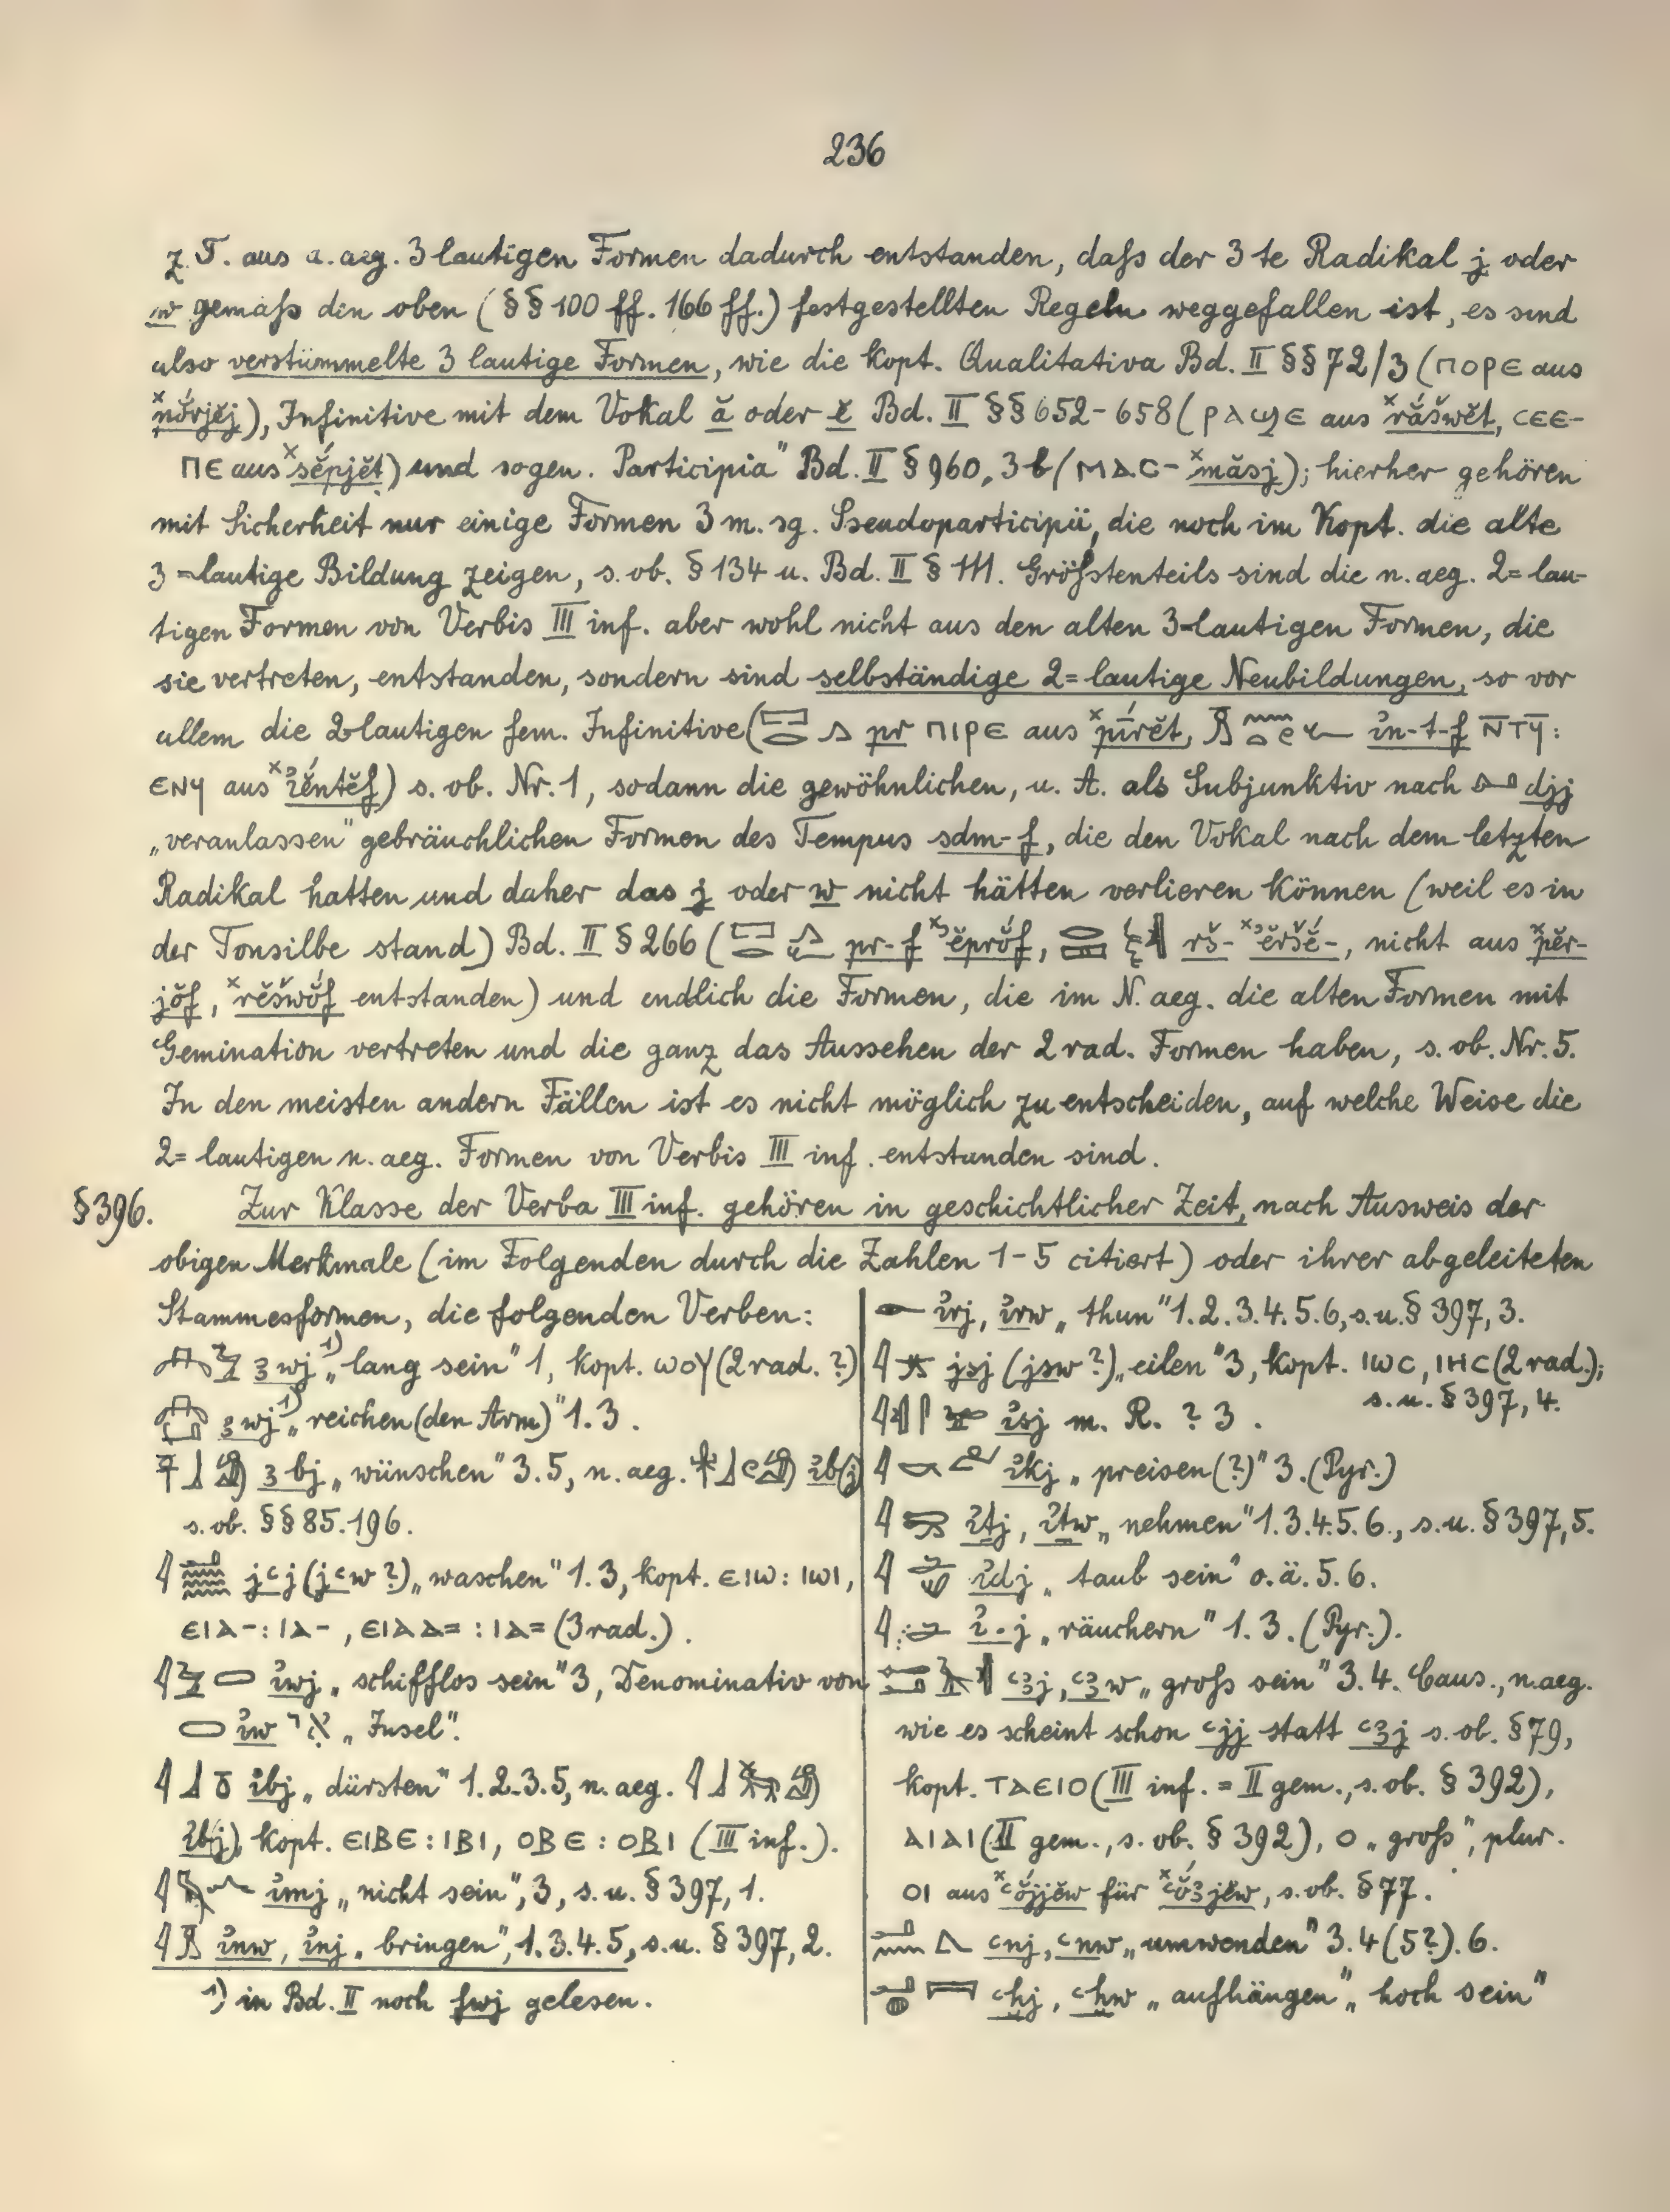 236
z. T. aus a. aeg. 3 lautigen Formen dadurch entstanden, daſs der 3 te Radikal j oder
w gemäſs den oben (§§ 100 ff. 166 ff.) festgestellten Regeln weggefallen ist, es sind
also verstümmelte 3 lautige Formen, wie die kopt. Qualitativa Bd. II §§ 72/3 (ⲡⲟⲣⲉ aus
), Infinitive mit dem Vokal ă oder ĕ Bd. II §§ 652-658 (ⲣⲁϣⲉ aus ˣrắšwĕt, ⲥⲉⲉ-
ⲡⲉ aus ˣsĕ́pjĕt) und sogen. Participia" Bd. II § 960, 3b (ⲙⲁⲥ- ˣmăsj); hierher gehören
mit Sicherheit nur einige Formen 3 m. sg. Pseudoparticipii, die noch im Kopt. die alte
3=lautige Bildung zeigen, s. ob. § 134 u. Bd. II § 111. Gröſstenteils sind die n. aeg. 2=lau-
tigen Formen von Verbis III inf. aber wohl nicht aus den alten 3=lautigen Formen, die
sie vertreten, entstanden, sondern sind selbständige 2=lautige Neubildungen, so vor
allem die 2lautigen fem. Infinitive (𓉐𓂋 𓂻 pr ⲡⲓⲣⲉ aus ˣpírĕt, in-t-f ⲛ̅ⲧϥ̅:
ⲉⲛϥ aus ˣꞽĕ́ntĕf) s. ob. Nr. 1, sodann die gewöhnlichen, u. A. als Subjunktiv nach djj
„veranlassen" gebräuchlichen Formen des Tempus sdm-f, die den Vokal nach dem letzten
Radikal hatten und daher das j oder w nicht hätten verlieren können (weil es in
der Tonsilbe stand) Bd. II § 266 (𓉐𓂋 pr-f ˣꜣĕprŏ́f, rš- ˣꜣĕršĕ́-, nicht aus ˣpĕr-
jŏ́f, ˣrĕšwŏ́f entstanden) und endlich die Formen, die im N. aeg. die alten Formen mit
Gemination vertreten und die ganz das Aussehen der 2 rad. Formen haben, s. ob. Nr. 5.
In den meisten andern Fällen ist es nicht möglich zu entscheiden, auf welche Weise die
2=lautigen n. aeg. Formen von Verbis III inf. entstanden sind.
§ 396. Zur Klasse der Verba III inf. gehören in geschichtlicher Zeit, nach Ausweis der
obigen Merkmale (im Folgenden durch die Zahlen 1-5 citiert) oder ihrer abgeleiteten
Stammesformen, die folgenden Verben:
ꜣwj ¹) „lang sein" 1, kopt. ⲱⲟⲩ (2 rad. ?)
ꜣwj ¹) „reichen (den Arm)" 1. 3.
ꜣbj „wünschen" 3. 5, n. aeg. ꞽb(j)
s. ob. §§ 85. 196.
jꜥj (jꜥw ?) „waschen" 1. 3, kopt. ⲉⲓⲱ: ⲓⲱⲓ,
ⲉⲓⲁ-: ⲓⲁ-, ⲉⲓⲁⲁ= : ⲓⲁ= (3 rad.).
ꞽwj „schifflos sein" 3, Denominativ von
ꞽw אי „Insel".
𓇋𓃀 ꞽbj „dürsten" 1. 2. 3. 5, n. aeg.
ꞽb(j), kopt. ⲉⲓⲃⲉ: ⲓⲃⲓ, ⲟⲃⲉ: ⲟⲃⲓ (III inf.).
ꞽmj „nicht sein", 3, s. u. § 397, 1.
ꞽnw, ꞽnj „bringen", 1. 3. 4. 5, s. u. § 397, 2.
¹) in Bd. II noch fwj gelesen.
𓁹 ꞽrj, ꞽrw „thun" 1. 2. 3. 4. 5. 6, s. u. § 397, 3.
jsj (jsw ?) „eilen" 3, kopt. ⲓⲱⲥ, ⲓⲏⲥ (2 rad.);
s. u. § 397, 4.
ꞽsj m. R. ? 3.
ꞽkj „preisen (?)" 3. (Pyr.)
ꞽṯj, ꞽṯw „nehmen" 1. 3. 4. 5. 6., s. u. § 397, 5.
ꞽdj „taub sein" o. ä. 5. 6.
ꞽ . j „räuchern" 1. 3. (Pyr.).
ꜥꜣj, ꜥꜣw „groſs sein" 3. 4. Caus., n. aeg.
wie es scheint schon ꜥjj statt ꜥꜣj s. ob. § 79,
kopt. ⲧⲁⲉⲓⲟ (III inf. = II gem., s. ob. § 392),
ⲁⲓⲁⲓ (II gem., s. ob. § 392), ⲟ „groſs", plur.
ⲟⲓ aus ˣꜥŏ́jjĕw für ˣꜥŏ́ꜣjĕw, s. ob. § 77.
ꜥnj, ꜥnw „umwenden" 3. 4 (5?). 6.
ꜥḫj, ꜥḫw „aufhängen", „hoch sein"